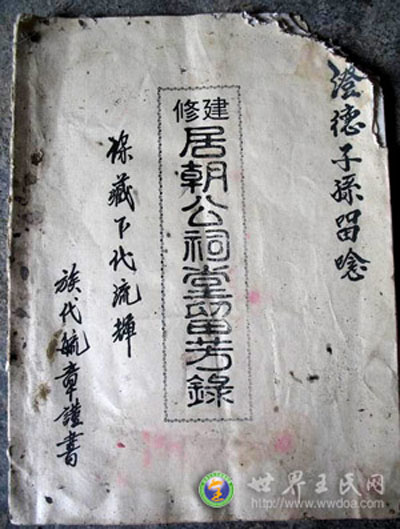 澄德子孫留唸
修建
居朝公祠堂留芳錄
保藏下代流輝
族代毓章謹書
世界王氏网
http://www.wwdoa.com